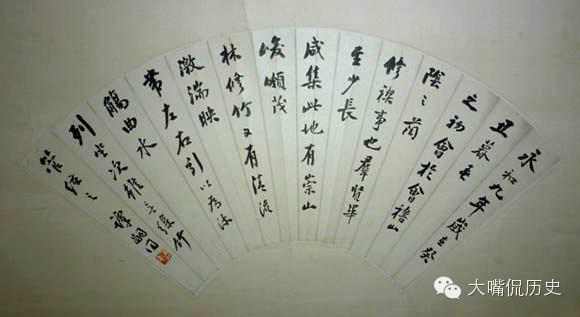 永和九年歲在癸
丑暮春
之初會於會稽山
陰之蘭
修禊事也羣賢畢
至少長
咸集此地有崇山
峻領茂
林修竹又有清流
激湍映
帶左右引以為流
觴曲水
列坐次雖無絲竹
管絃之 譚嗣同
大嘴侃历史